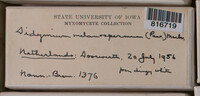 STATE UNIVERSITY OF IOWA
MYXOMYCETE COLLECTION
816719
Didymium melanospermum (Pers.) Macbr.
Netherlands: Doornwerth, 20 July 1956
Hann. Bum. 1376